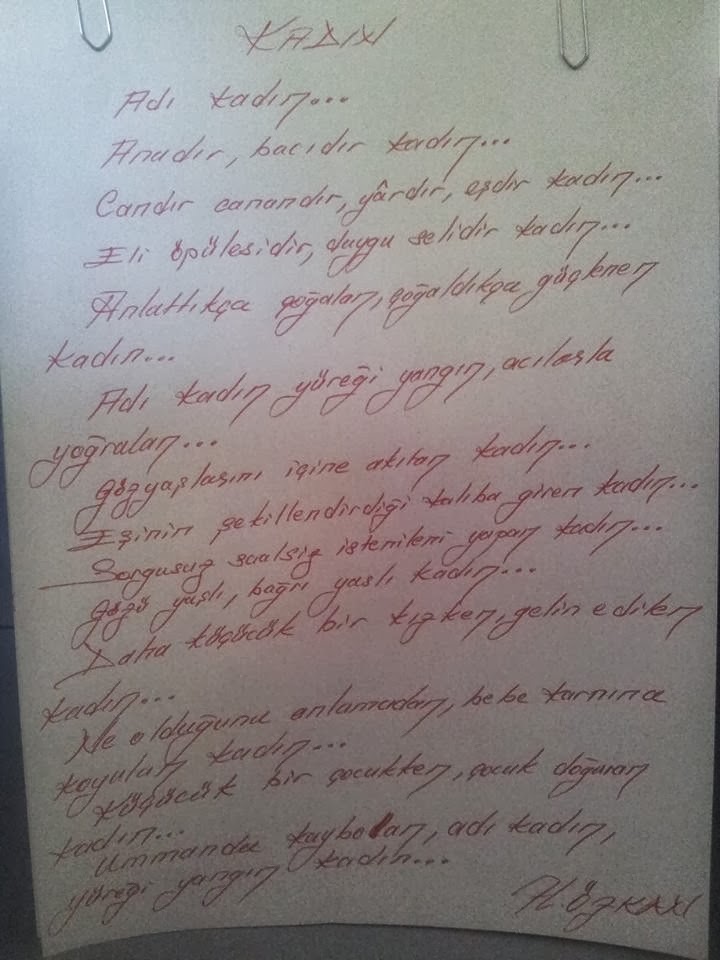 KADIN
Adı kadın...
Anadır, bacıdır kadın...
Candır canandır, yârdır, eşdir kadın...
Eli öpülesidir, duygu selidir kadın...
Anlattıkça çoğalan, çoğaldıkça güçlenen
kadın...
Adı kadın yüreği yangın, acılarla
yoğralan...
gözyaşlarını içine akıtan kadın...
Eşinin şekillendirdiği kalıba giren kadın...
Sorgusuz sualsiz istenileni yapan kadın...
gözü yaşlı, bağrı yaslı kadın...
Daha küçücük bir kızken, gelin edilen
kadın...
Ne olduğunu anlamadan, bebe karnına
koyulan kadın...
küçücük bir çocukken, çocuk doğuran
kadın...
Ummanda kaybolan, adı kadın,
yüreği yangın kadın...
H. ÖZKAN